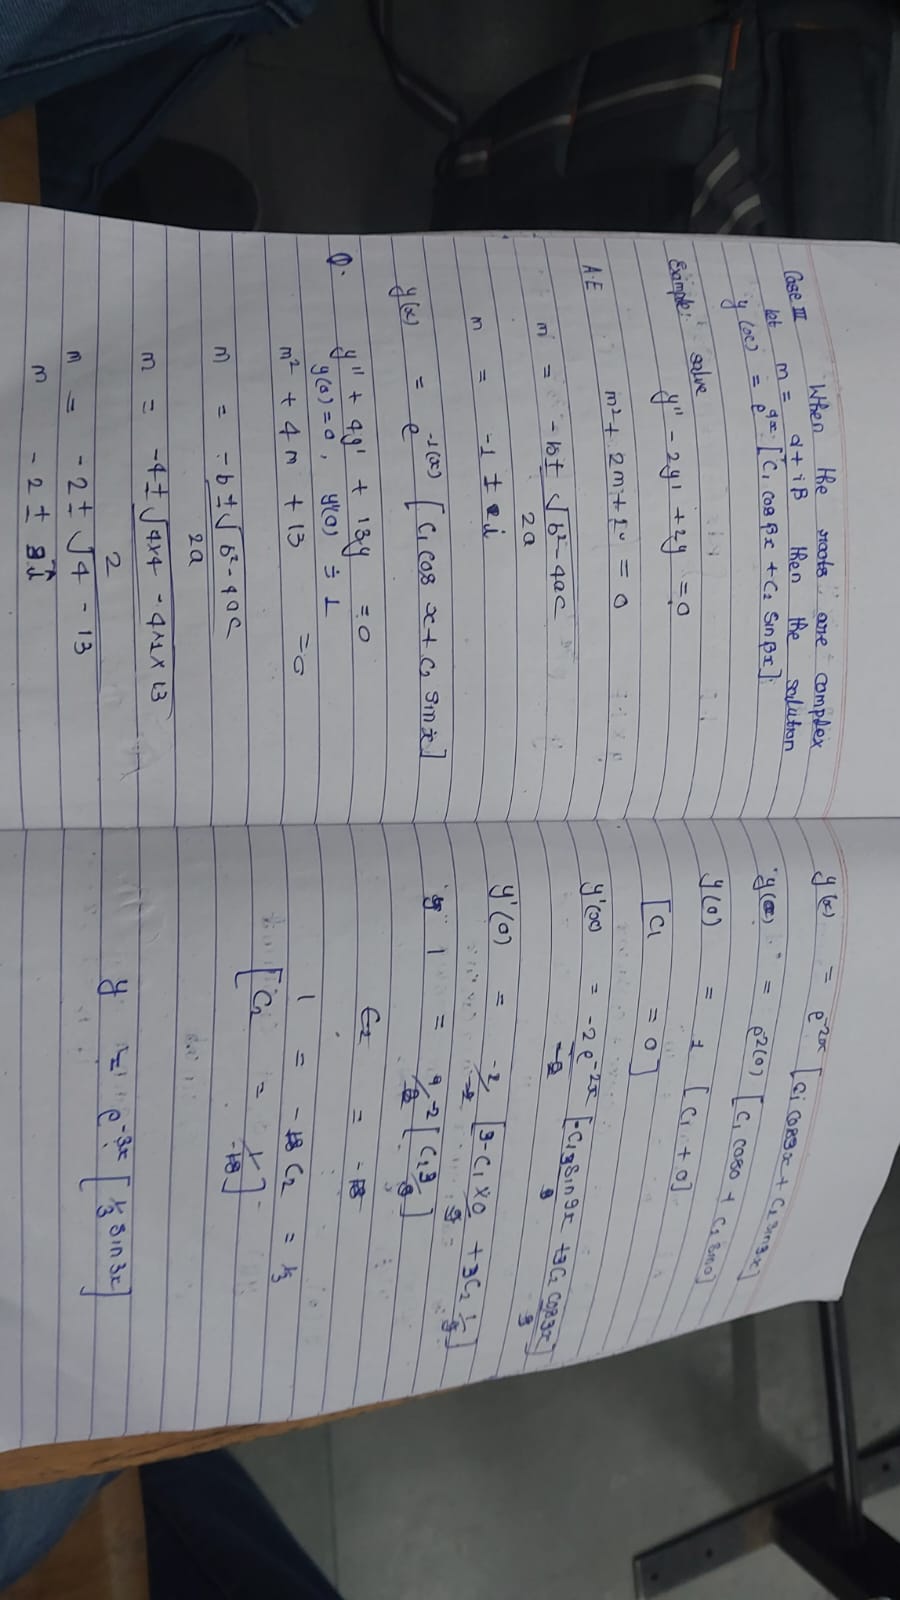 Case III When the roots are complex
let m = α + iβ then the solution
y(x) = e^αx [C1 cos βx + C2 sin βx].
Example: solve
y'' - 2y' + 2y = 0
A.E m² + 2m + 2 = 0
m = -b ± √b² - 4ac
2a
m = -1 ± i
y(x) = e^-1(x) [C1 cos x + C2 sin x]
Q. y'' + 4y' + 13y = 0
y(0) = 0, y'(0) = 1
m² + 4m + 13 = 0
m = -b ± √b² - 4ac
2a
m = -4 ± √4×4 - 4×1×13
2
m = -2 ± √4 - 13
m -2 ± 3i
y(x) = e^-2x [C1 cos3x + C2 sin3x]
= e^2(0) [C1 cos0 + C2 sin0]
y(0) = 1 [C1 + 0]
[C1 = 0]
y'(x) = -2e^-2x [-C1 3 sin 3x + 3C2 cos3x]
y'(0) = -2 [3 - C1 × 0 + 3C2 1]
1 = -2 [C2 3]
C2 = -18
1 = -18 C2 = 1/3
[C2 = 1/-18]
y = e^-3x [1/3 sin 3x]